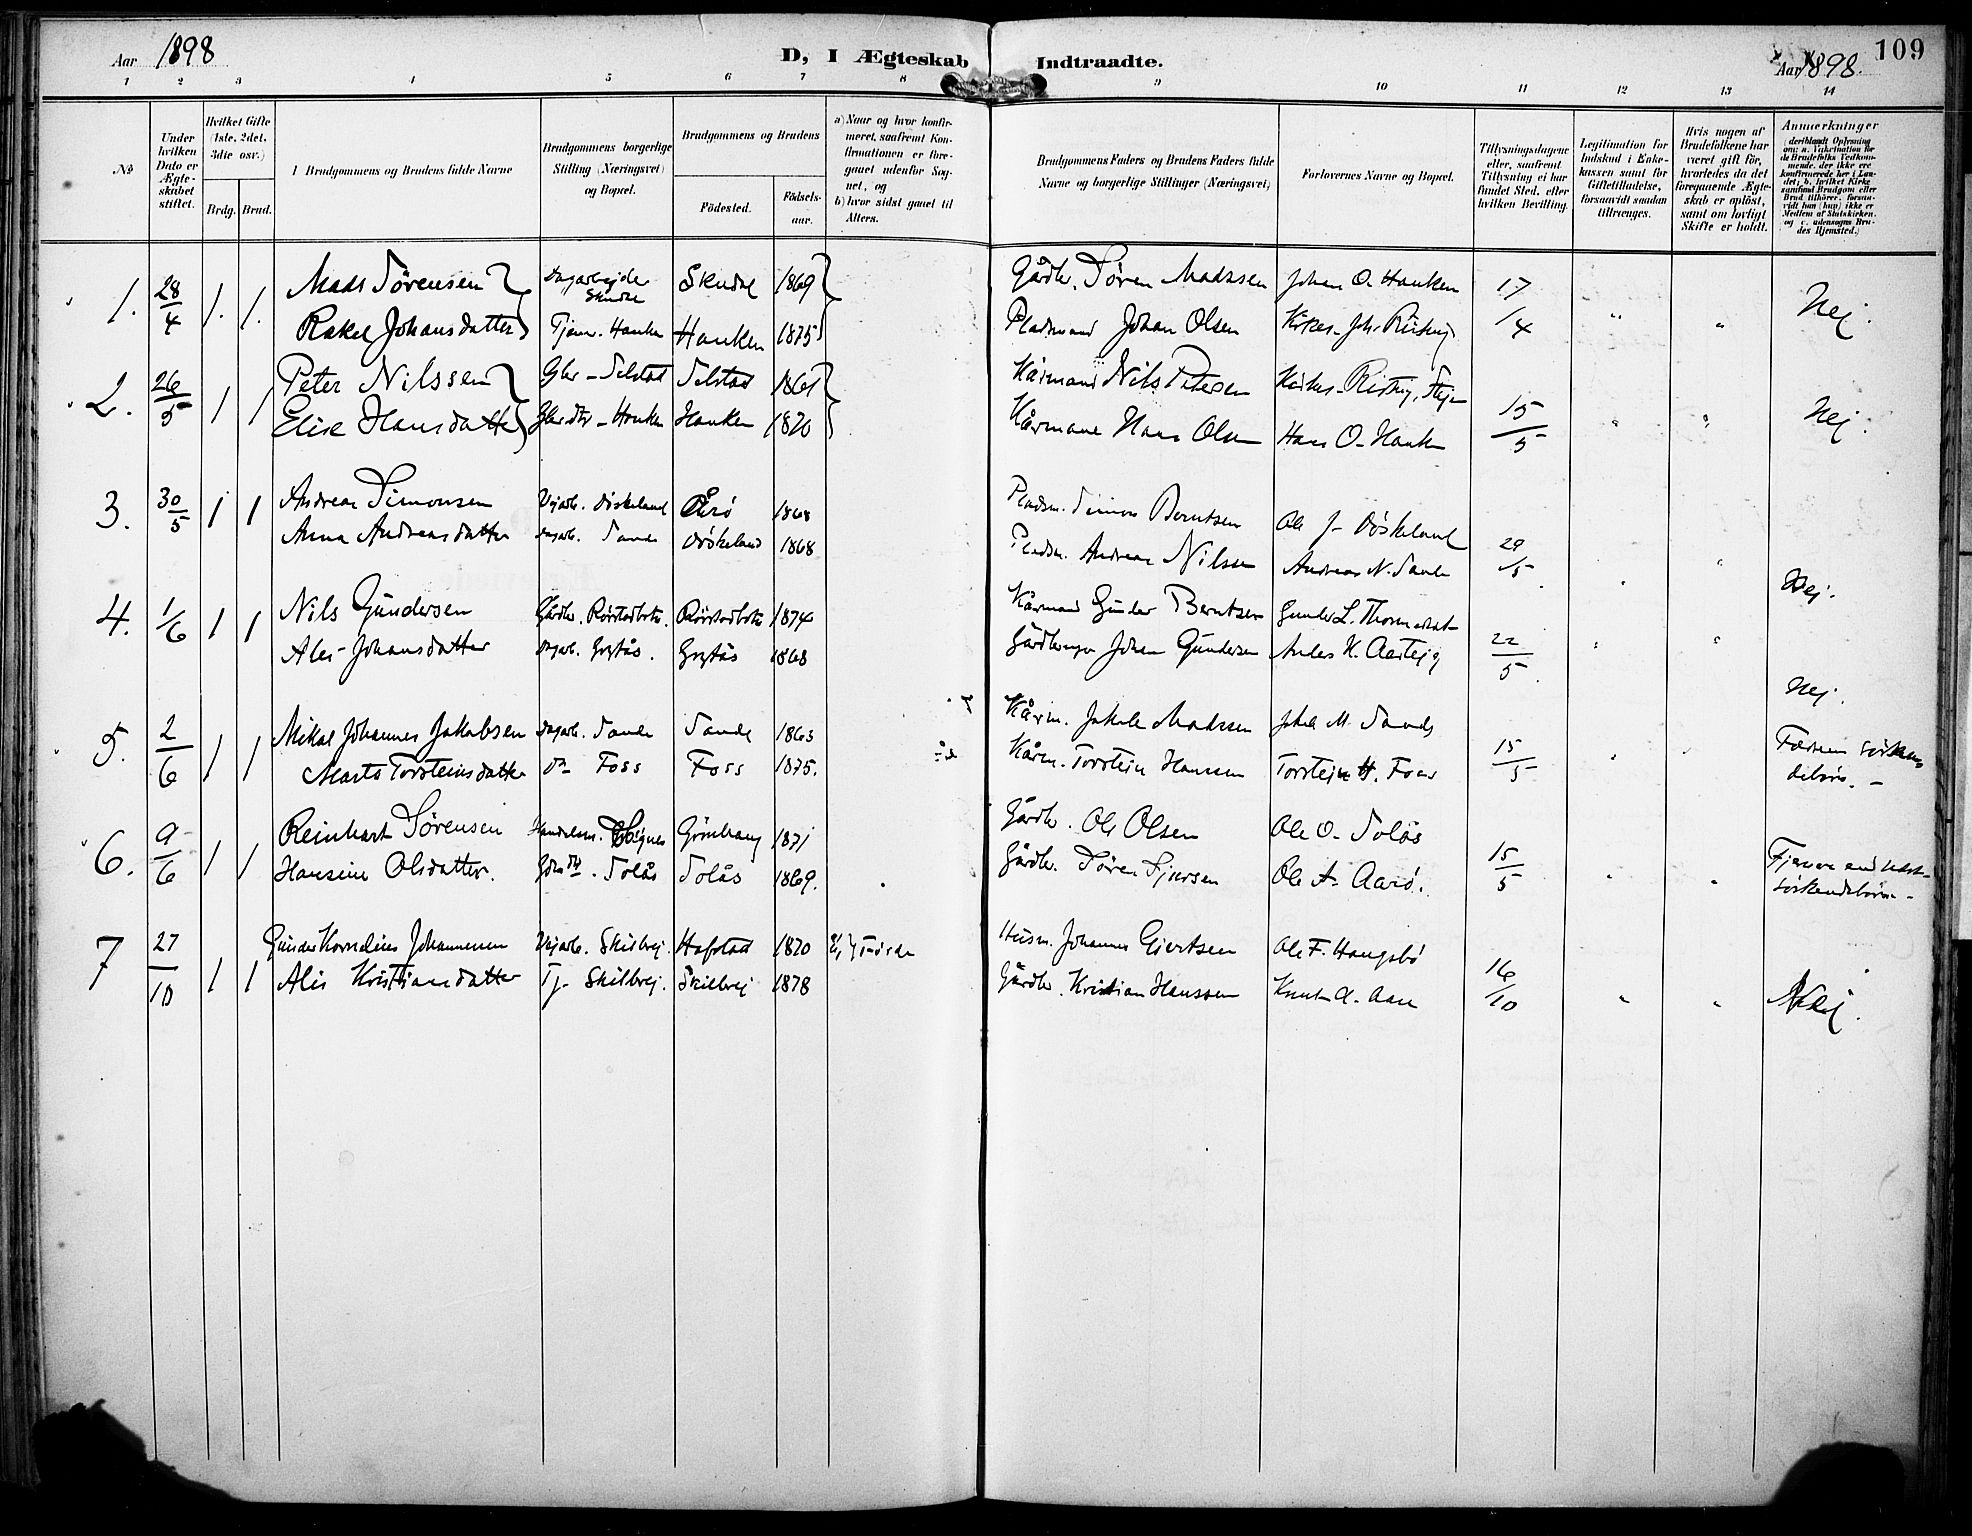 Aar 1898
D, I Ægteskab Indtraadte.
Aar 1898.
109
1 2 3 4 5 6 7 8 9 10 11 12 13 14
No
Under hvilken Dato er Ægteskabet stiftet.
Hvilket Gifte (1ste, 2det, 3die osv.)
Brdg. Brud.
Brudgommens og Brudens fulde Navne
Brudgommens borgerlige Stilling (Næringsvei) og Bopæl.
Brudgommens og Brudens
Fødested.
Fødselsaar.
a) Naar og hvor konfirmeret, saafremt Konfirmationen er foregaaet udenfor Sognet, og
b) hvor sidst gaaet til Alters.
Brudgommens Faders og Brudens Faders fulde Navne og borgerlige Stillinger (Næringsvei)
Forlovernes Navne og Bopæl.
Tillysningsdagene eller, saafremt Tillysning ei har fundet Sted, efter hvilken Bevilling.
Legitimation for Indskud i Enkekassen samt for Giftetilladelse, forsaavidt saadan tiltrænges.
Hvis nogen af Brudefolkene har været gift før, hvorledes da det foregaaende Ægteskab er opløst, samt om lovligt Skifte er holdt.
Anmerkninger
(deriblandt Oplysning om: a. Vakcination for de Brudefolks Vedkommende, der ikke ere konfirmerede her i Landet; b. hvilket Kirkesamfund Brudgom eller Brud tilhører, forsaavidt han (hun) ikke er Medlem af Statskirken, og c. udensogns Brudes Hjemsted.)
1. 28/4 1. 1. Mads Sørensen Dagarbejder Skudal Skudal 1869 Gårdbr. Søren Madssen Johan O. Hanken 17/4 " " Nej.
Rakel Johansdatter Tjener. Hanken Hanken 1875 Pladsmand Johan Olsen
2. 26/5 1 1 Peter Nilssen Gbr - Solstad Solstad 1861 Kårmand Nils Petersen 15/5 " " Nej.
Elise Hansdatter Gbr.dtr - Hanken Hanken 1870 Kårmand Hans Olsen Hans O. Hanken
3. 30/5 1 1 Andreas Simonsen Vejarb. Døskeland Årø 1868 Pladsm. Simon Berntsen Ole J. Døskeland 29/5 " " Nej.
Anna Andreasdatter Dagarb. Sande Døskeland 1868 Pladsm. Andreas Nilssen Andreas N. Sande
4. 1/6 1 1 Nils Gundersen Gårdbr. 1874 Kårmand Gunder Berntsen Gunder L. 22/5 " " Nej.
Ales Johansdatter Dagarb. Grytås. Grytås 1868 Gårdbruger Johan Gundersen Anders K.
5. 2/6 1 1 Mikal Johannes Jakobsen Dagarb. Sande Sande 1863 Kårm. Jakob Madssen Jakob M. Sande 15/5 " " Fædrene søskendebørn. -
Marta Torsteinsdatter Do Foss Foss 1875. Kårm. Torstein Hanssen Torstein H. Foss
6. 9/6 1 1 Reinhart Sørensen Handelsm. 1871 Gårdbr. Ole Olsen Ole O. Solås 15/5 " " Fjernere end næstsøskendebørn -
Hansine Olsdatter. Gbrs dtr. Solås Solås 1869. Gårdbr. Søren Ole A. Aarø.
7 27/10 1 1 Gunder Kornelius Johannessen Vejarb. Skilbrej. Hafstad 1870 Førde Husm. Johannes Gjertsen Ole F. Haugsbø 16/10 " " Nej.
Ales Kristiansdatter Tj. Skilbrej. Skilbrej 1878 Gårdbr. Kristian Hanssen Knut A. Aase